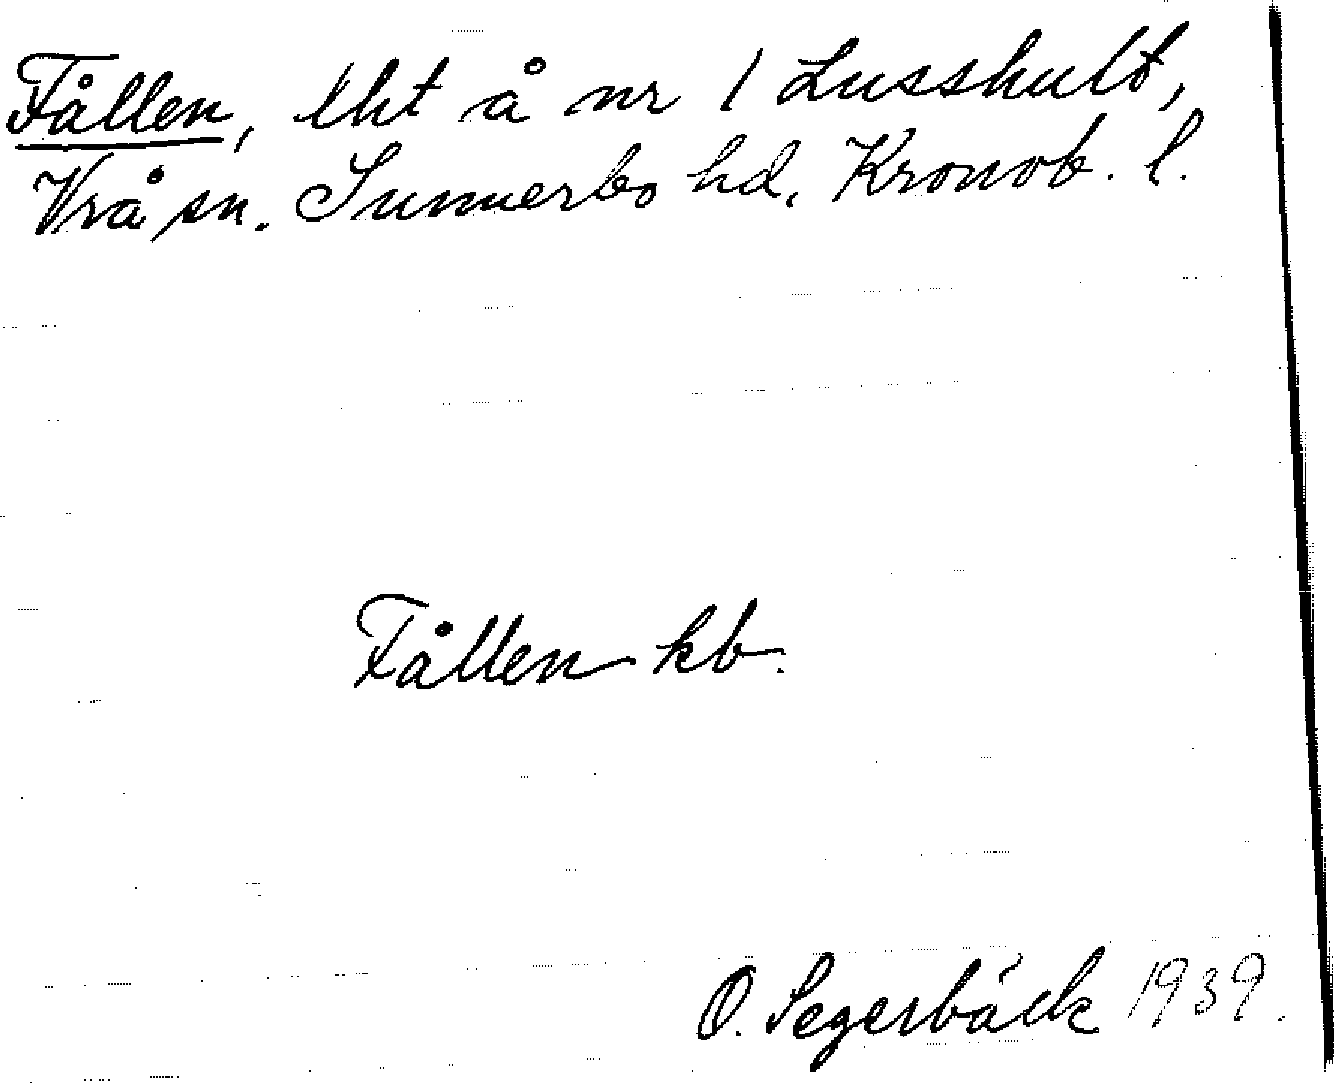 Fållen, lht å nr 1 Lusshult,
Vrå sn. Sunnerbo hd, Kronob. l.
Fållen kb.
O. Segerbäck 1939.